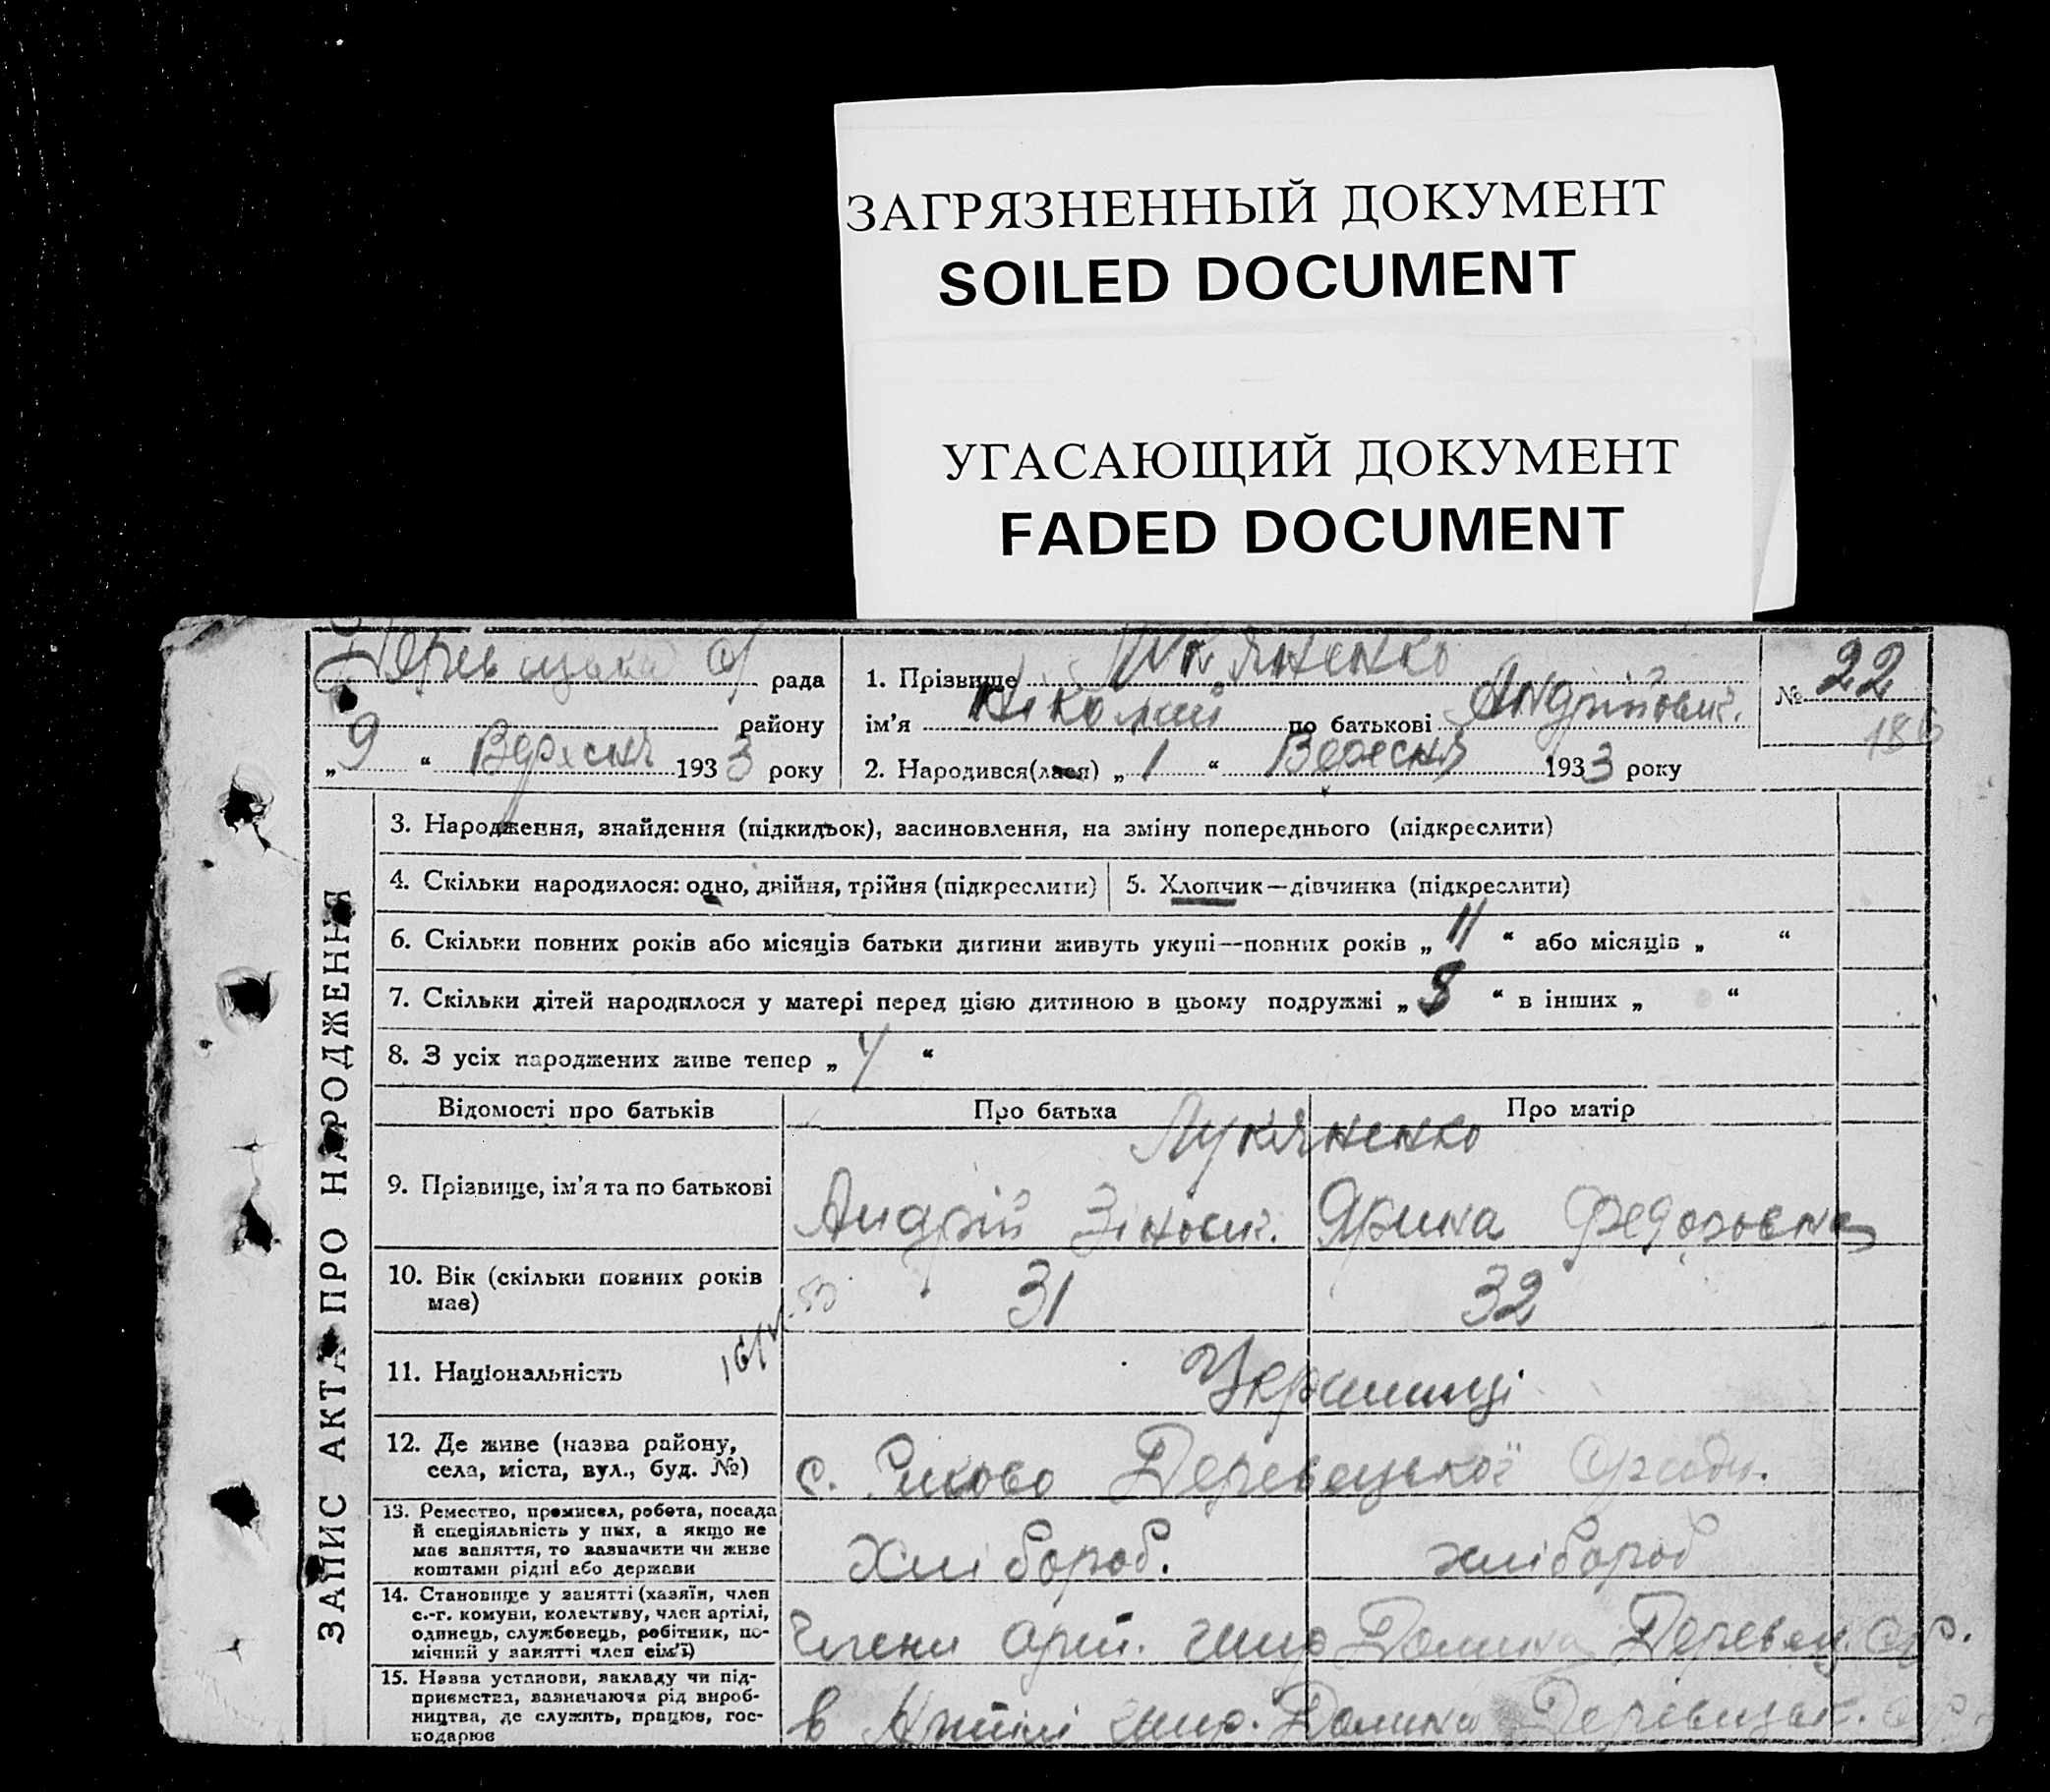 ЗАГРЯЗНЕННЫЙ ДОКУМЕНТ
SOILED DOCUMENT
УГАСАЮЩИЙ ДОКУМЕНТ
FADED DOCUMENT
рада
району
„ 9 “ Вересня 1933 року
1. Прізвище
ім’я по батькові Андрійович.
2. Народився(лася) „ 1 “ Вересня 1933 року
№ 22
186
ЗАПИС АКТА ПРО НАРОДЖЕННЯ
3. Народження, знайдення (підкидьок), засиновлення, на зміну попереднього (підкреслити)
4. Скільки народилося: одно, двійня, трійня (підкреслити)
5. Хлопчик—дівчинка (підкреслити)
6. Скільки повних років або місяців батьки дитини живуть укупі—повних років „ 11 “ або місяців „ “
7. Скільки дітей народилося у матері перед цією дитиною в цьому подружжі „ “ в інших „ “
8. З усіх народжених живе тепер „ “
Відомості про батьків
Про батька
Про матір
Лукяненко
9. Прізвище, ім’я та по батькові
Андрій Зінов.
Ярина Федоровна
10. Вік (скільки повних років має)
31
32
11. Національність
Українці
12. Де живе (назва району, села, міста, вул., буд. №)
с. Деревецької
13. Ремество, промисел, робота, посада
й спеціяльність у них, а якщо не
має заняття, то зазначити чи живе
коштами рідні або держави
Хлібороб.
хлібороб
14. Становище у занятті (хазяїн, член
с.-г. комуни, колективу, член артілі,
одинець, службовець, робітник, по-
мічний у занятті член сім’ї)
Члени арт. Долина Деревец.
15. Назва установи, закладу чи під-
приємства, зазначаючи рід вироб-
ництва, де служить, працює, гос-
подарює
в Артілі Долина